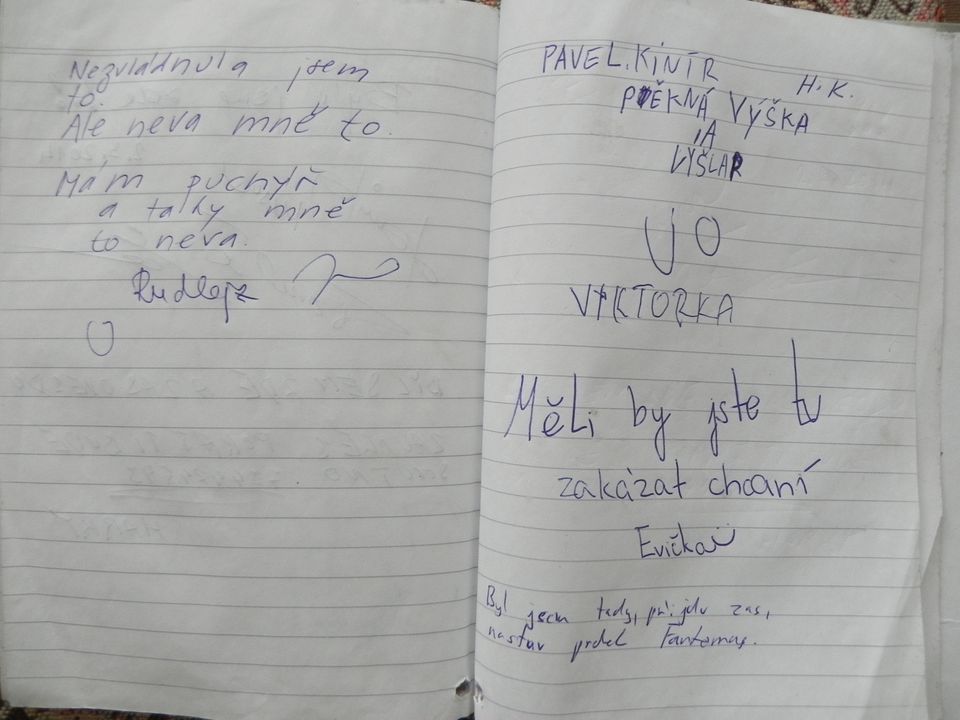 Nezvládnula jsem
to.
Ale neva mně to.
Mám puchýř
a taky mně
to neva.
Rudlajz
PAVEL.KINÍR
H.K.
PĚKNÁ VÝŠKA
A
VÝŠLAP
JO
VIKTORKA
Měli by jste tu
zakázat chcaní
Evička
Byl jsem tady, přijdu zas,
nastav prdel Fantomas.